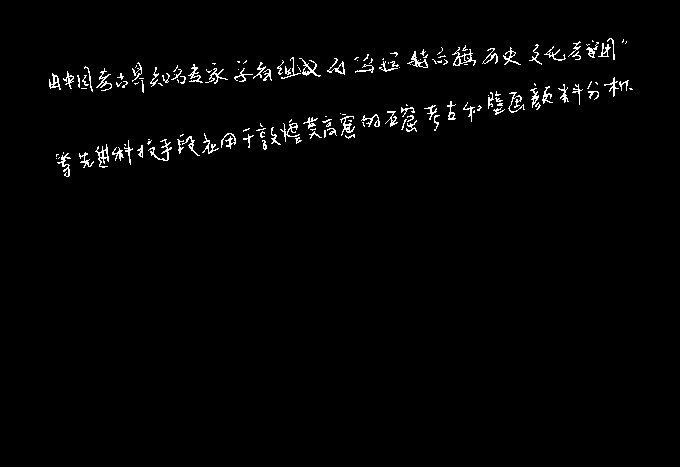 由中国考古界知名专家学者组成的 历史文化考察团”
等先进科技手段应用于敦煌莫高窟的石窟考古和壁画颜料分析